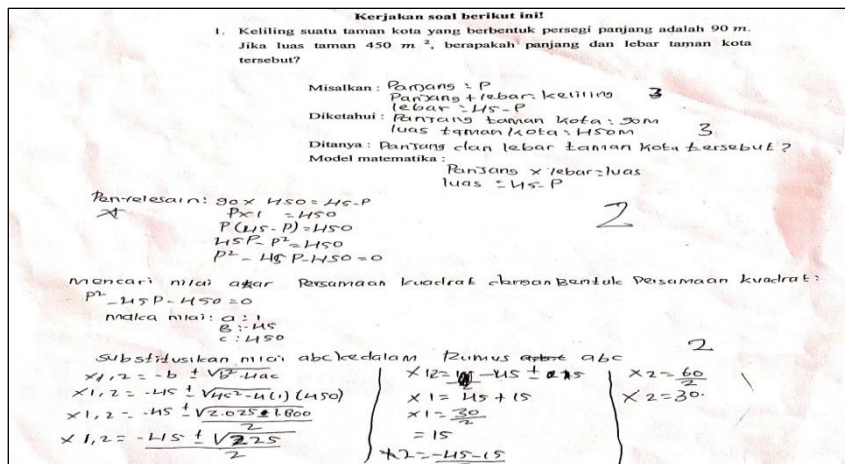 Kerjakan soal berikut ini!
1. Keliling suatu taman kota yang berbentuk persegi panjang adalah 90 m.
Jika luas taman 450 m ², berapakah panjang dan lebar taman kota
tersebut?
Misalkan : Panjang = P
Panjang + lebar = keliling 3
lebar = 45-P
Diketahui : Panjang taman kota : 90m
luas taman kota : 450m 3
Ditanya : Panjang dan lebar taman kota tersebut ?
Model matematika :
Panjang x lebar = luas
luas = 45-P
Penyelesain: 90 x 450 = 45-P 2
P x l = 450
P(45-P) = 450
45P - P² = 450
P² - 45P - 450 = 0
mencari nilai akar Persamaan kuadrat dengan Bentuk Persamaan kuadrat :
P² - 45P - 450 = 0
maka nilai : a : 1
B : -45
c : 450
2
Substitusikan nilai abc kedalam Rumus abc
x1,2 = -b ± √b²-4ac
x1,2 = -45 ± √45²-4(1)(450)
x1,2 = -45 ± √2.025 1.800
2
x1,2 = -45 ± √225
2
x12 = -45 ± 15
2
x1 = 45 + 15
x1 = 30
2
= 15
x2 = -45-15
x2 = 60
2
x2 = 30.